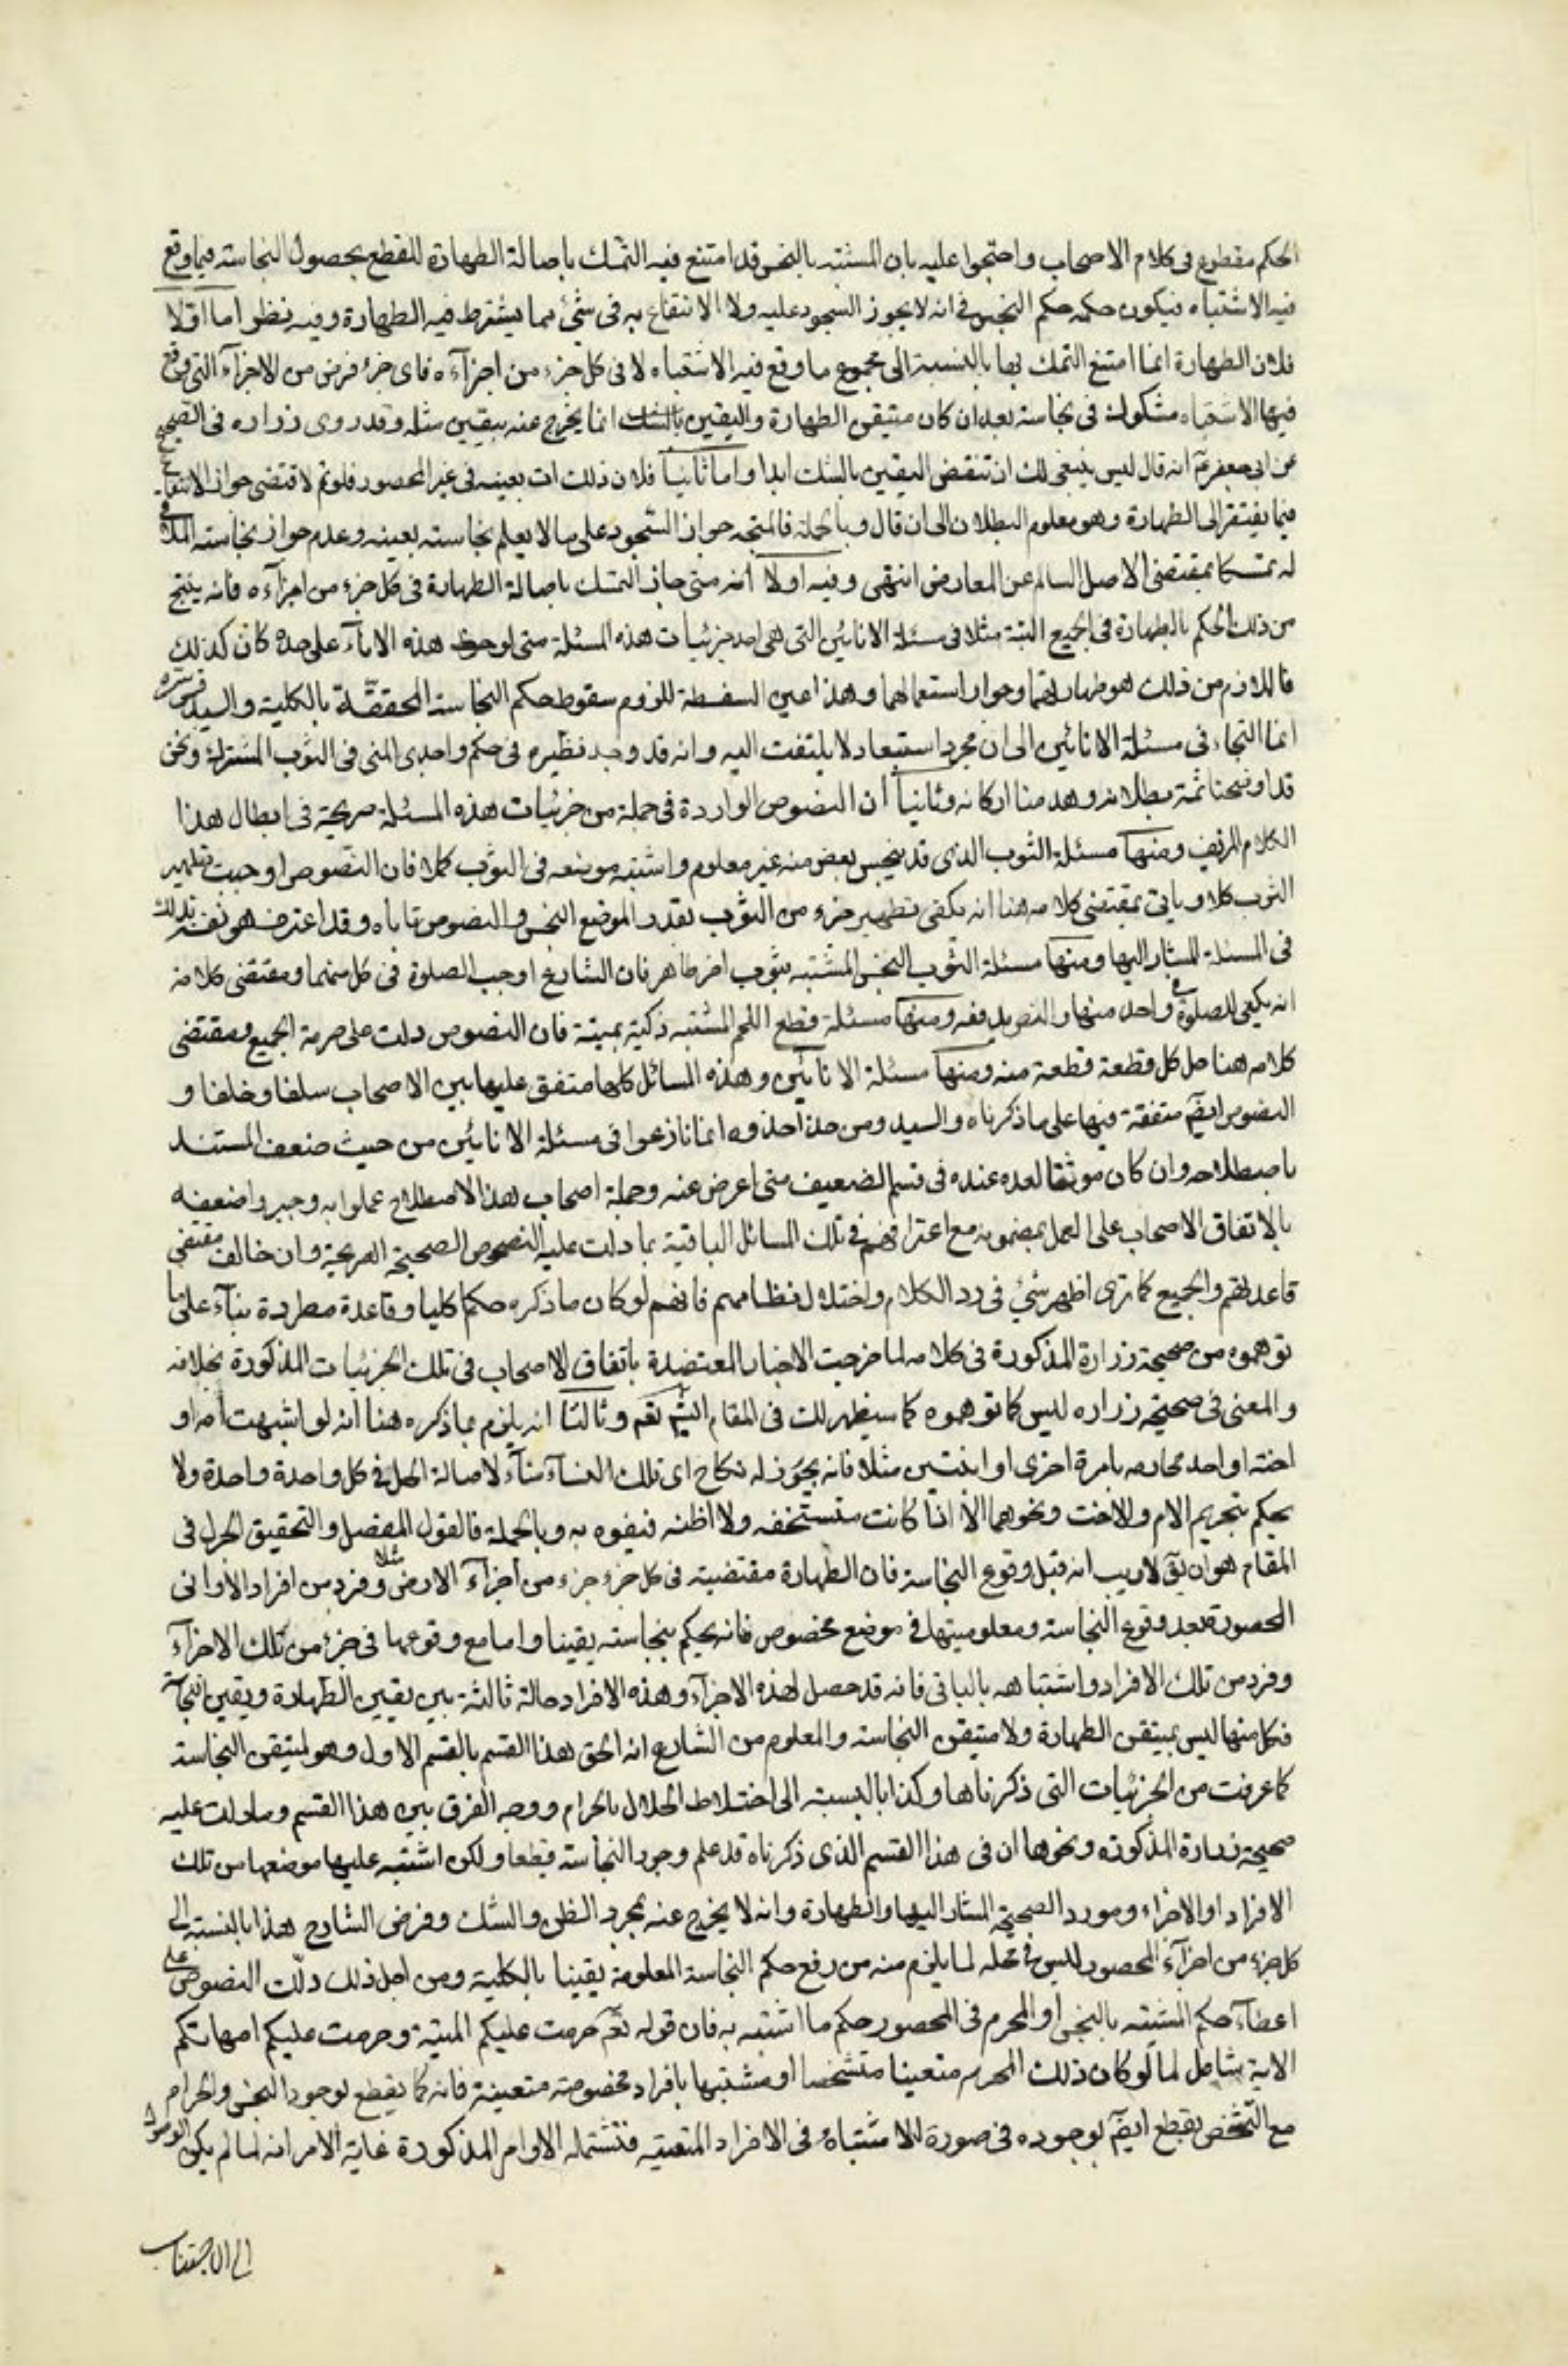 الحكم مقطوع فى كلام الاصحاب واحتجوا عليه بان المشتبه بالنجس قد امتنع فيه التمسك باصالة الطهارة للقطع بحصول النجاسة فيما وقع
فيه الاشتباه فيكون حكمه حكم النجس فى انه لا يجوز السجود عليه ولا الانتفاع به فى شئ مما يشترط فيه الطهارة وفيه نظر اما اولا
فلان الطهارة انما امتنع التمسك بها بالنسبة الى مجموع ما وقع فيه الاشتباه لا فى كل جزء من اجزآءه فاى جزء فرض من الاجزآء التى وقع
فيها الاشتباه مشكوك فى نجاسته بعد ان كان متيقن الطهارة واليقين بالشك انما يخرج عنه بيقين مثله وقد روى زراره فى الصحيح
عن ابى جعفر ع انه قال ليس ينبغى لك ان تنقض اليقين بالشك ابدا واما ثانيا فلان ذلك ات بعينه فى غير المحصور فلو تم لاقتضى جواز الانتفاع به
فيما يفتقر الى الطهارة وهو معلوم البطلان الى ان قال وبالجملة فالمتجه جواز السجود على ما لا يعلم نجاسته بعينه وعدم جواز نجاسته الملاقى
له تمسكا بمقتضى الاصل السالم عن المعارض انتهى وفيه اولا انه متى جاز التمسك باصالة الطهارة فى كل جزء من اجزآءه فانه ينتج
من ذلك الحكم بالطهارة فى الجميع البتة مثلا فى مسئلة الانائين التى هى احد جزئيات هذه المسئلة متى لوحظ هذه الاناء على حده كان كذلك
فاللازم من ذلك هو طهارتهما وجواز استعمالهما وهذا عين السفسطة للزوم سقوط حكم النجاسة المحققة بالكلية والسيد قدس سره
انما التجاء فى مسئلة الانائين الى ان مجرد استبعاد لا يلتفت اليه وانه قد وجد نظيره فى حكم واجدى المنى فى الثوب المشترك ونحن
قد اوضحنا ثمة بطلانه وهدمنا اركانه وثانيا ان النصوص الواردة فى جملة من جزئيات هذه المسئلة صريحة فى ابطال هذا
الكلام المزيف ومنها مسئلة الثوب الذى قد ينجس بعض منه غير معلوم واشتبه موضعه فى الثوب كملا فان النصوص اوجبت تطهير
الثوب كلا وياتى بمقتضى كلامه هنا انه يكفى تطهير جزء من الثوب بقدر الموضع النجس والنصوص تاباه وقد اعترف هو نفسه بذلك
فى المسئلة المشار اليها ومنها مسئلة الثوب النجس المشتبه بثوب اخر طاهر فان الشارع اوجب الصلوة فى كل منهما ومقتضى كلامه
انه يكفى الصلوة فى واحد منها والنص يدفعه ومنها مسئلة قطع اللحم المشتبه ذكية بميتة فان النصوص دلت على حرمة الجميع ومقتضى
كلامه هنا حل كل قطعة قطعة منه ومنها مسئلة الانائين وهذه المسائل كلها متفق عليها بين الاصحاب سلفا وخلفا و
النصوص ايضا متفقة فيها على ما ذكرناه والسيد ومن حذا حذوه انما نازعوا فى مسئلة الانائين من حيث ضعف المستند
باصطلاحه وان كان موثقا لعده عنده فى قسم الضعيف متى اعرض عنه وجملة اصحاب هذا الاصطلاح عملوا به وجبروا ضعفه
بالاتفاق الاصحاب على العمل بمضمونه مع اعترافهم فى تلك المسائل الباقية بما دلت عليه النصوص الصحيحة الصريحة وان خالف مقتضى
قاعدتهم والجميع كما ترى اظهر شئ فى رد الكلام واختلال نظامهم فانهم لو كان ما ذكره حكما كليا وقاعدة مطردة بنآء على ما
توهموه من صحيحة زرارة المذكورة فى كلامه لما خرجت الاخبار المعتضدة باتفاق الاصحاب فى تلك الجزئيات المذكورة بخلافه
والمعنى فى صحيحة زراره ليس كما توهموه كما سيظهر لك فى المقام وثالثا انه يلزم بما ذكره هنا انه لو اشبهت امه او
اخته او احد محارمه بامرة اخرى او اثنتين مثلا فانه يجوز له نكاح اى تلك النسآء بنآء لاصالة الحل فى كل واحدة واحدة ولا
يحكم بتحريم الام والاخت ونحوهما الا اذا كانت متشخصة ولا اظنه فيفوه به وبالجملة فالقول المفصل والتحقيق الجزل فى
المقام هو ان يق لاريب انه قبل وقوع النجاسة فان الطهارة مقتضية فى كل جزء جزء من اجزآء الارض مثلا وفرد من افراد الاوانى
المحصورة وبعد وقوع النجاسة ومعلوميتها فى موضع مخصوص فانه يحكم بنجاسته يقينا واما مع وقوعها فى جزء من تلك الاجزآء
وفرد من تلك الافراد واشتباهه بالباقى فانه قد حصل لهذه الاجزآء وهذه الافراد حالة ثالثة بين يقين الطهارة ويقين النجاسة
فكل منها ليس بمتيقن الطهارة ولا متيقن النجاسة والمعلوم من الشارع انه الحق هذا القسم بالقسم الاول وهو المتيقن النجاسة
كما عرفت من الجزئيات التى ذكرناها وكذا بالنسبة الى اختلاط الحلال بالحرام ووجه الفرق بين هذا القسم وما دلت عليه
صحيحة زرارة المذكورة ونحوها ان فى هذا القسم الذى ذكرناه قد علم وجود النجاسة قطعا ولكن اشتبه عليها موضعها من تلك
الافراد او الاجزاء ومورد الصحيحة المشار اليها والطهارة وانه لا يخرج عنه بمجرد الظن والشك وفرض الشارح هذا بالنسبة الى
كل جزء من اجزآء المحصور ليس فى محله لما يلزم منه من رفع حكم النجاسة المعلومة يقينا بالكلية ومن اجل ذلك دلت النصوص على
اعطآء حكم المشتبه بالنجس او المحرم فى المحصور حكم ما اشتبه به فان قوله تع حرمت عليكم الميتة وحرمت عليكم امهاتكم
الاية شامل لما لو كان ذلك المحرم متعينا متشخصا او مشتبها بافراد مخصوصة متعينة فانه كما يقطع بوجود النجس والحرام
مع التشخص يقطع ايضا بوجوده فى صورة الاشتباه وفى الافراد المتعينة فتشتمله الاوامر المذكورة غاية الامر انه لما لم يكن الوصول
الى الاجتناب